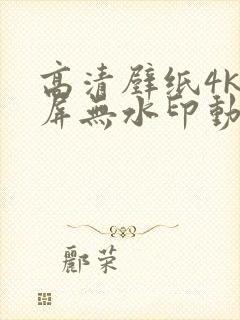 高清壁纸4K
屏無水印動
酈荣